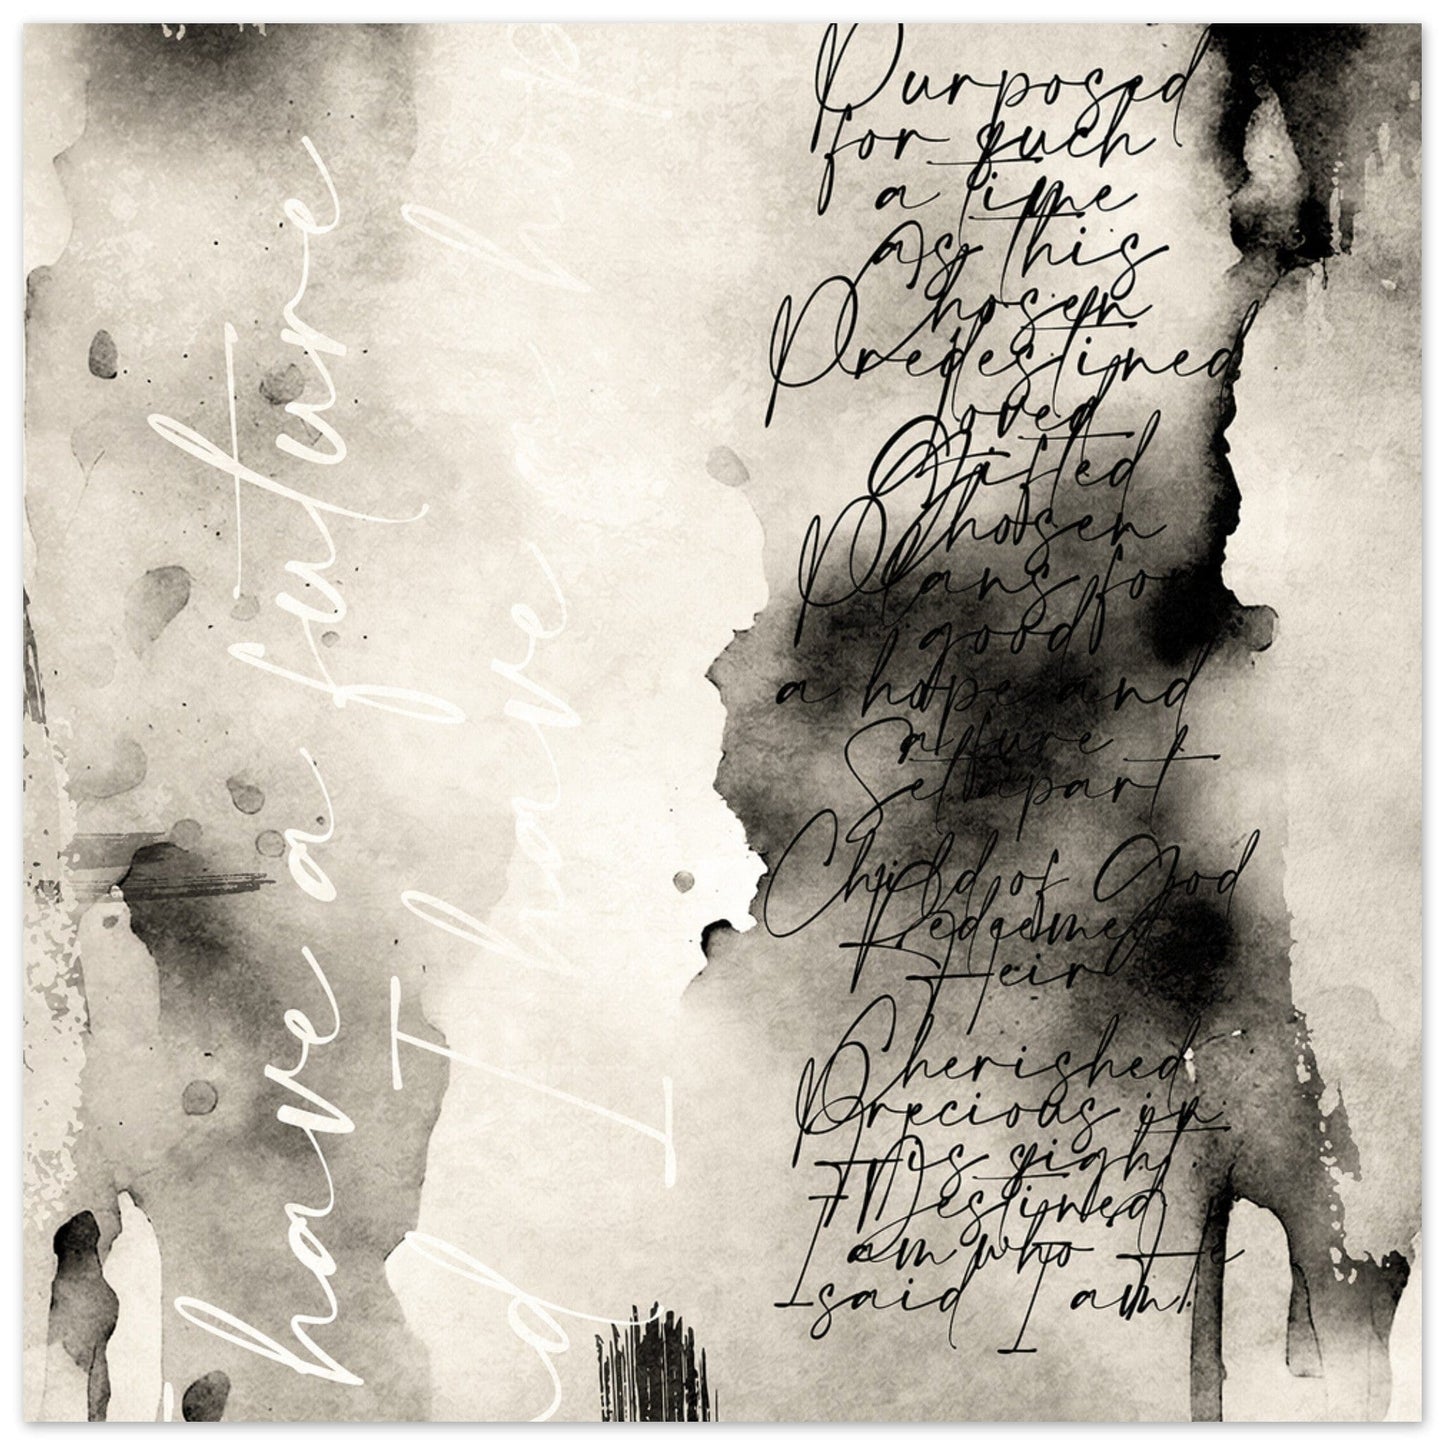 Purposed
for such
a time
as this
Chosen
Predestined
Loved
Gifted
Chosen
Plans for
good
a hope and
a future
Set apart
Child of God
Redeemed
Heir
Cherished
Precious in
His sight
Destined
I am who He
said I am!
have a future
I have a hop
I have
d